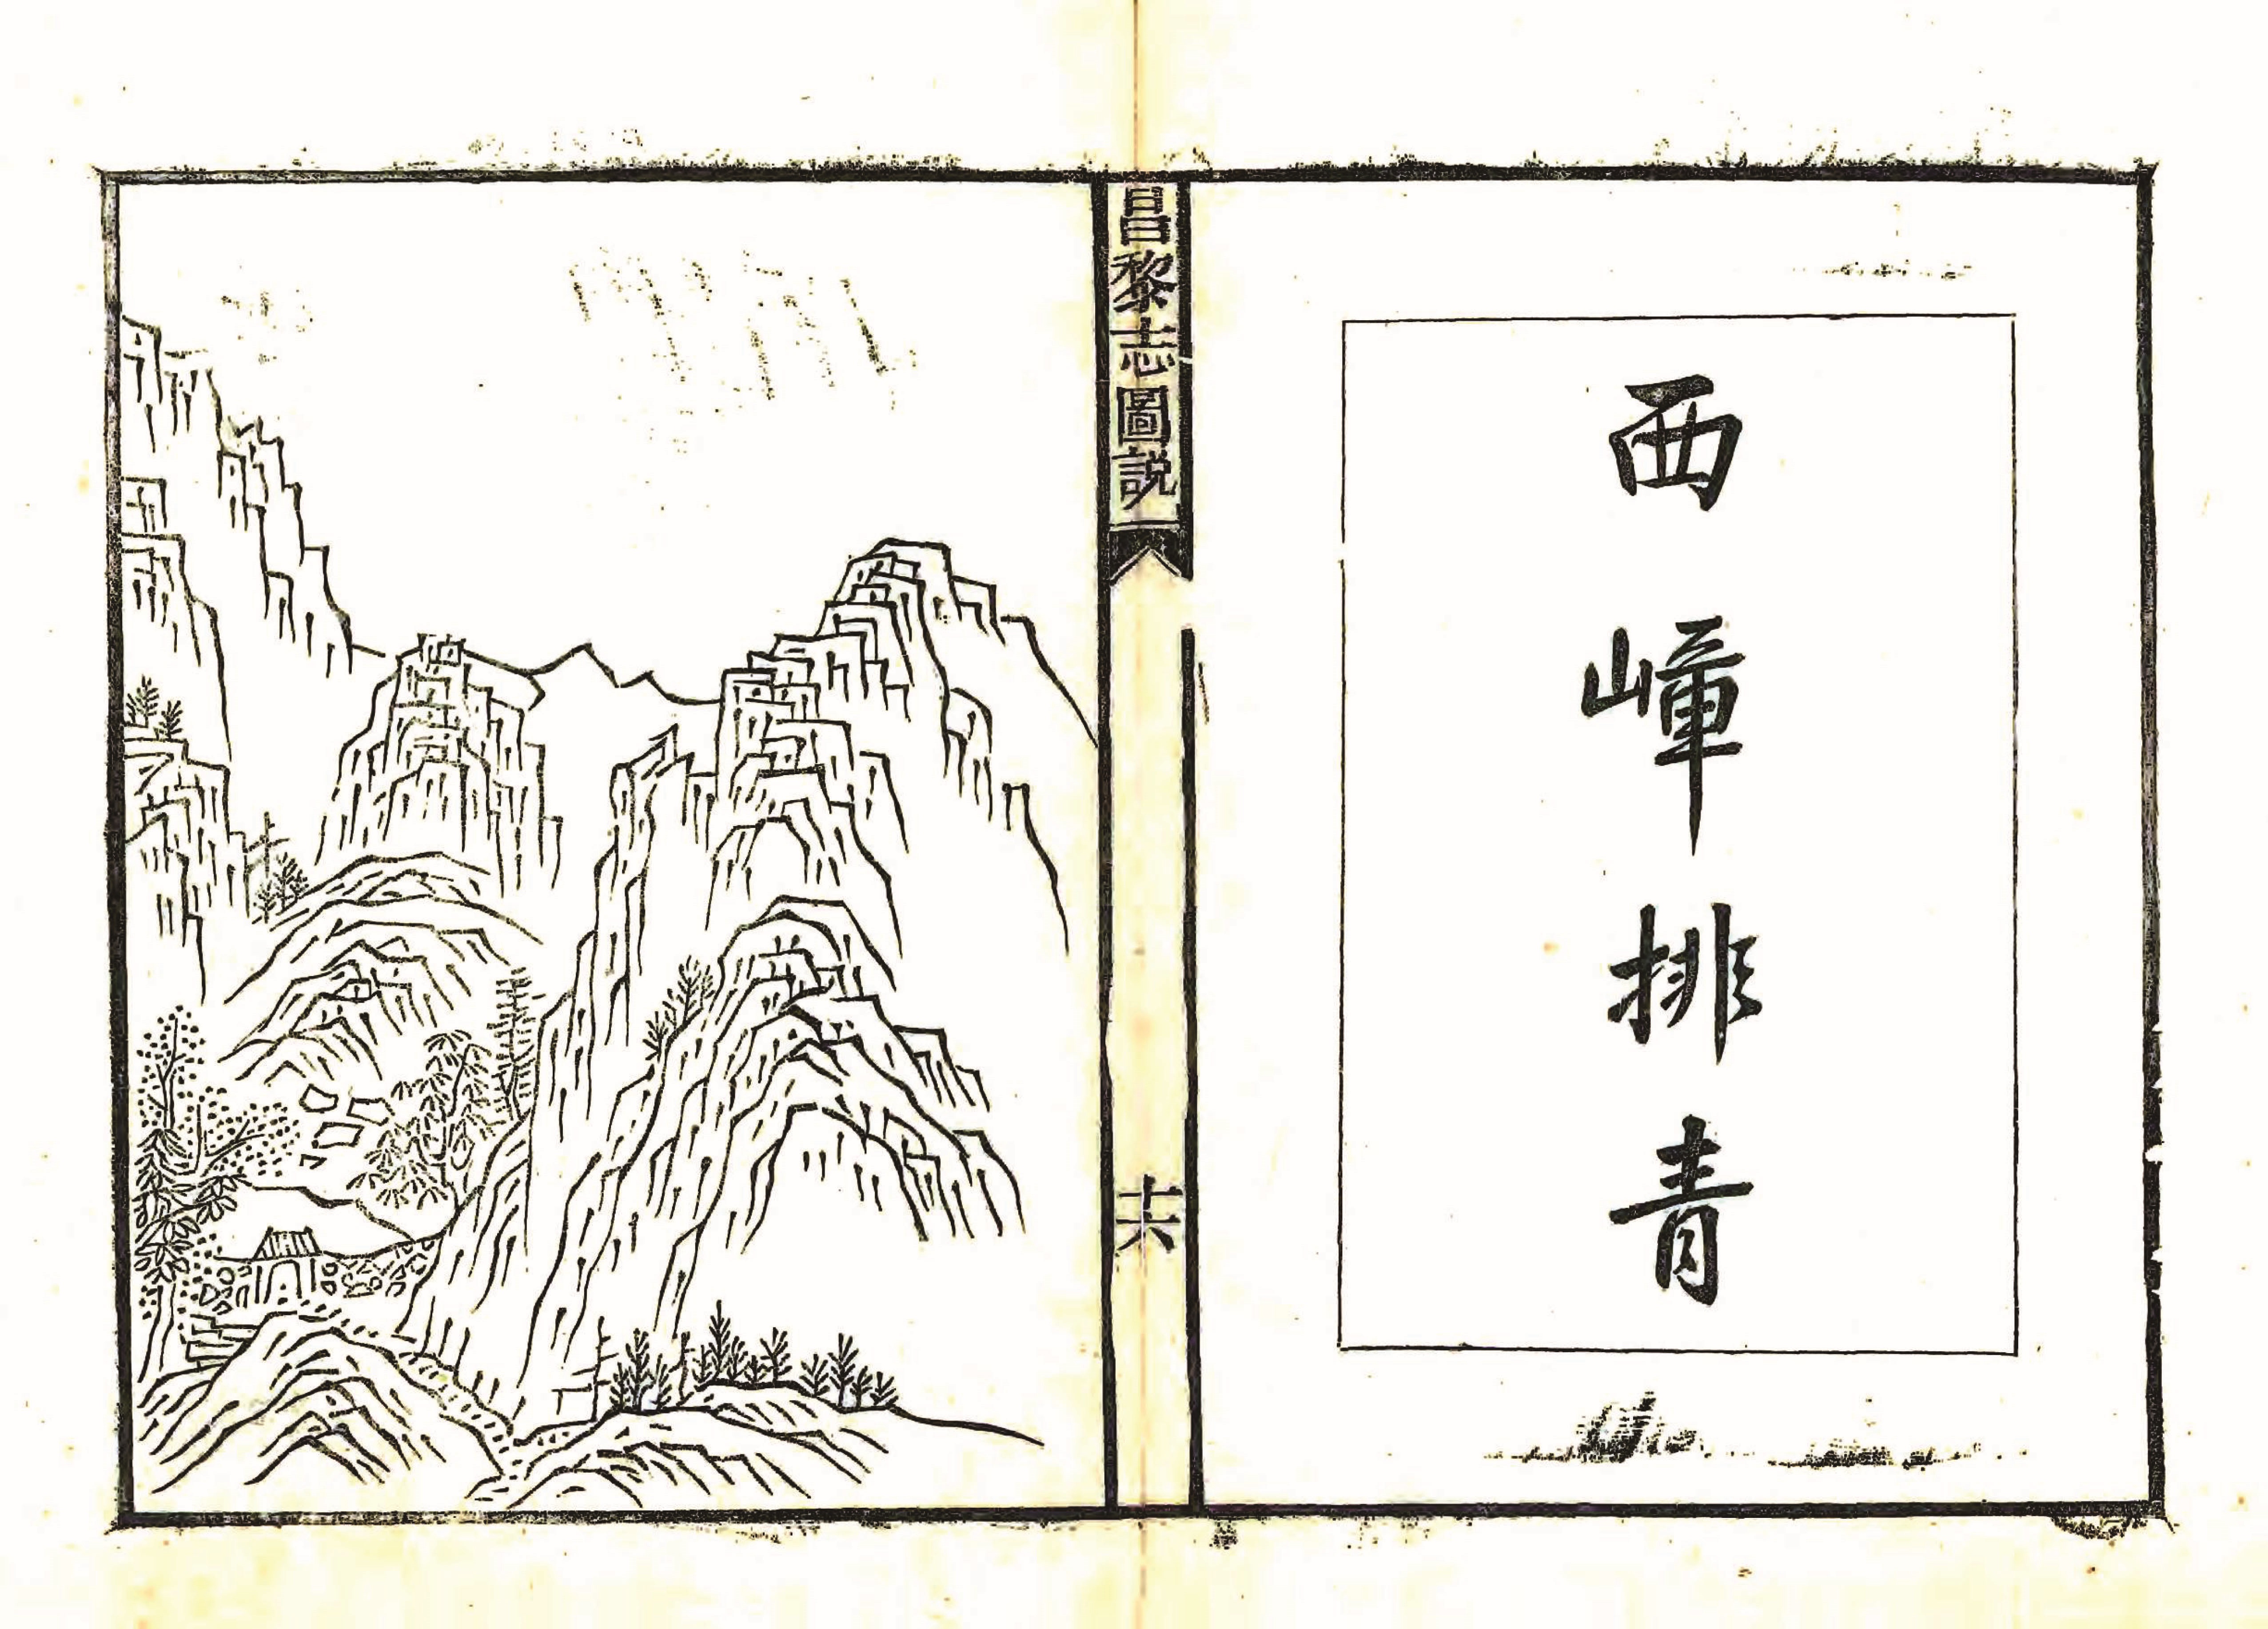 西嶂排青
昌黎志圖說
十六